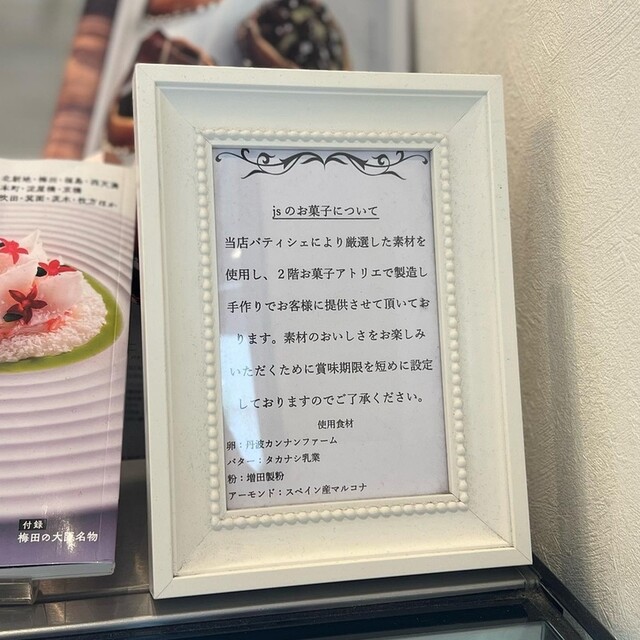 jsのお菓子について
当店パティシェにより厳選した素材を
使用し、２階お菓子アトリエで製造し
手作りでお客様に提供させて頂いてお
ります。素材のおいしさをお楽しみ
いただくために賞味期限を短めに設定
しておりますのでご了承ください。
使用食材
卵：丹波カンナンファーム
バター：タカナシ乳業
粉：増田製粉
アーモンド：スペイン産マルコナ
北新地・梅田・福島・西天満
本町・淀屋橋・京橋
吹田・箕面・茨木・枚方ほか
付録
梅田の大阪名物